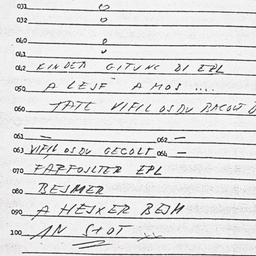 031
032
040
041
042 KINDER GITUNC DI EPL
050 A LEJE A MOS ....
060 TATE VIFIL OSDU BACOLT D
061 — 062 —
063 VIFIL OSDU GECOLT 064 —
070 FARFOILTER EPL
080 BEJMER
090 A HEJXER BEJM
100 IN STOT